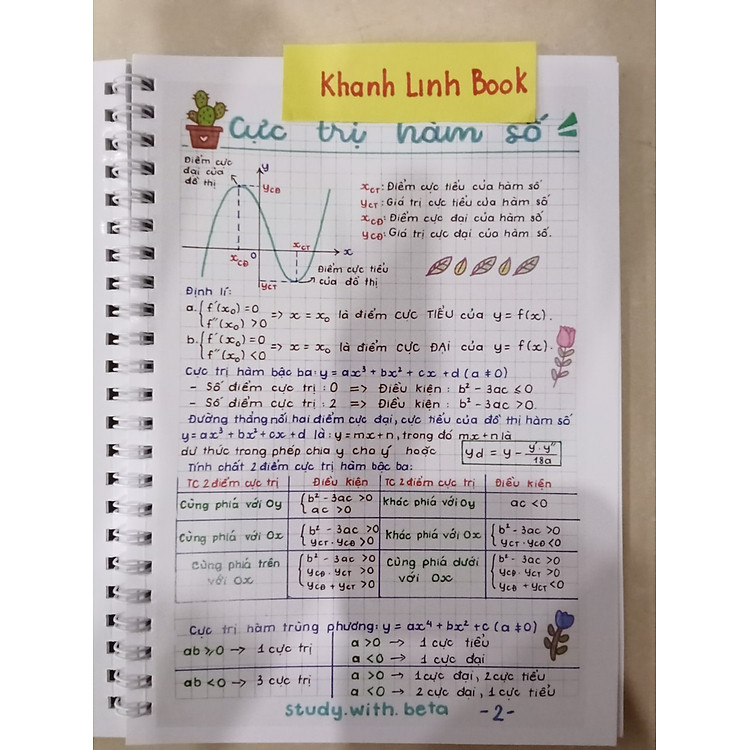 Khanh Linh Book
Cực trị hàm số
Điểm cực
đại của
đồ thị
y
yCĐ
xCT
xCĐ
O
x
yCT
Điểm cực tiểu
của đồ thị
xCT: Điểm cực tiểu của hàm số
yCT: Giá trị cực tiểu của hàm số
xCĐ: Điểm cực đại của hàm số
yCĐ: Giá trị cực đại của hàm số.
Định lí:
a. { f'(x₀) = 0
f''(x₀) > 0 => x = x₀ là điểm cực TIỂU của y = f(x).
b. { f'(x₀) = 0
f''(x₀) < 0 => x = x₀ là điểm cực ĐẠI của y = f(x).
Cực trị hàm bậc ba: y = ax³ + bx² + cx + d (a ≠ 0)
- Số điểm cực trị : 0 => Điều kiện : b² - 3ac ≤ 0
- Số điểm cực trị : 2 => Điều kiện : b² - 3ac > 0.
Đường thẳng nối hai điểm cực đại, cực tiểu của đồ thị hàm số
y = ax³ + bx² + cx + d là : y = mx + n, trong đó mx + n là
dư thức trong phép chia y cho y' hoặc yd = y - y'.y''/18a
Tính chất 2 điểm cực trị hàm bậc ba:
TC 2 điểm cực trị Điều kiện TC 2 điểm cực trị Điều kiện
Cùng phiá với Oy { b² - 3ac > 0
ac > 0 khác phiá với Oy ac < 0
Cùng phiá với Ox { b² - 3ac > 0
yCT . yCĐ > 0 khác phiá với Ox { b² - 3ac > 0
yCT . yCĐ < 0
Cùng phiá trên
với Ox { b² - 3ac > 0
yCĐ . yCT > 0
yCĐ + yCT > 0 Cùng phiá dưới
với Ox { b² - 3ac > 0
yCĐ . yCT > 0
yCĐ + yCT < 0
Cực trị hàm trùng phương: y = ax⁴ + bx² + c (a ≠ 0)
ab ≥ 0 → 1 cực trị
a > 0 → 1 cực tiểu
a < 0 → 1 cực đại
ab < 0 → 3 cực trị
a > 0 → 1 cực đại, 2 cực tiểu
a < 0 → 2 cực đại, 1 cực tiểu
study.with.beta -2-